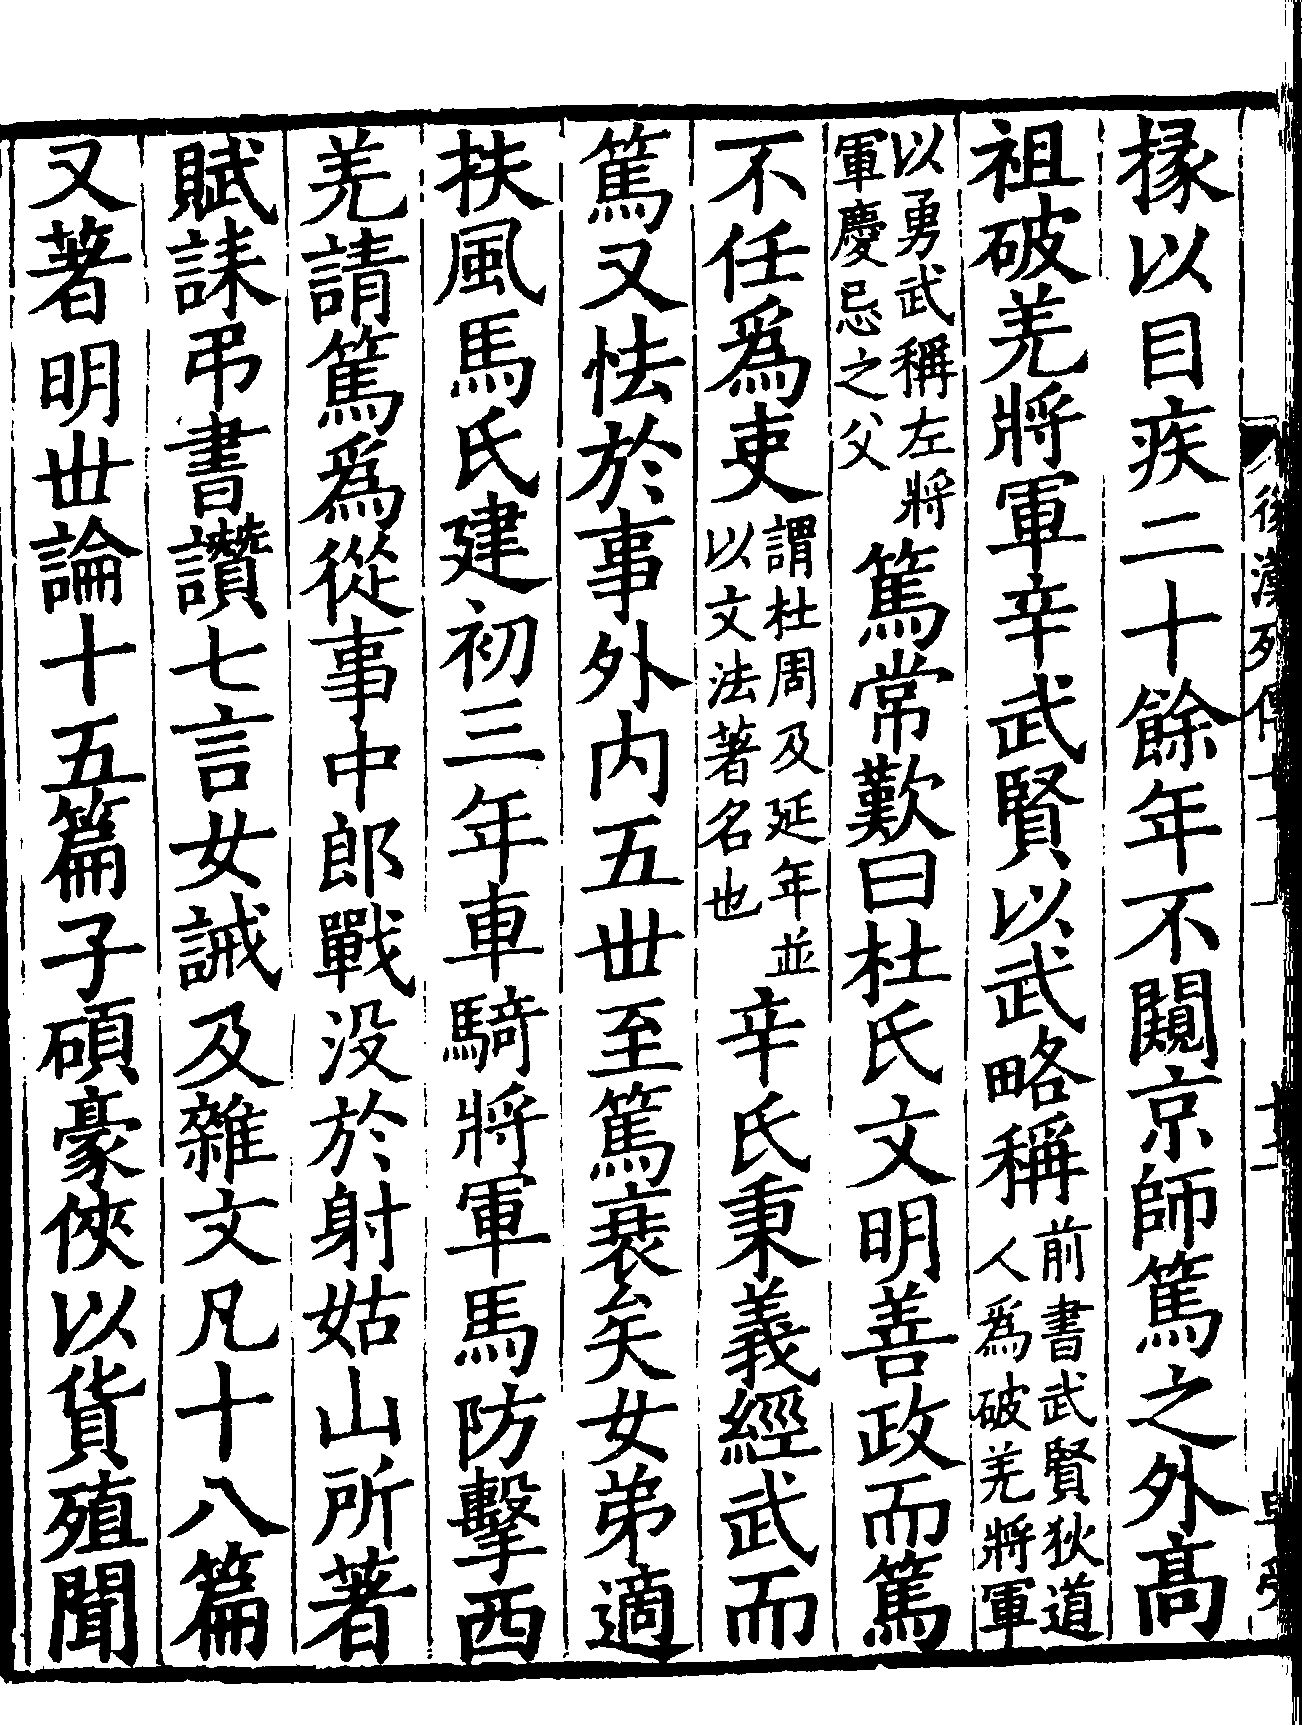 掾以目疾二十餘年不闚京師篤之外高
祖破羌將軍辛武賢以武略稱前書武賢狄道
人爲破羌將軍
以勇武稱左將
軍慶忌之父篤常歎曰杜氏文明善政而篤
不任爲吏謂杜周及延年並
以文法著名也辛氏秉義經武而
篤又怯於事外内五丗至篤衰矣女弟適
扶風馬氏建初三年車騎將軍馬防擊西
羌請篤爲從事中郎戰没於射姑山所著
賦誄弔書讚七言女誡及雜文凡十八篇
又著明丗論十五篇子碩豪俠以貨殖聞
後漢列傳